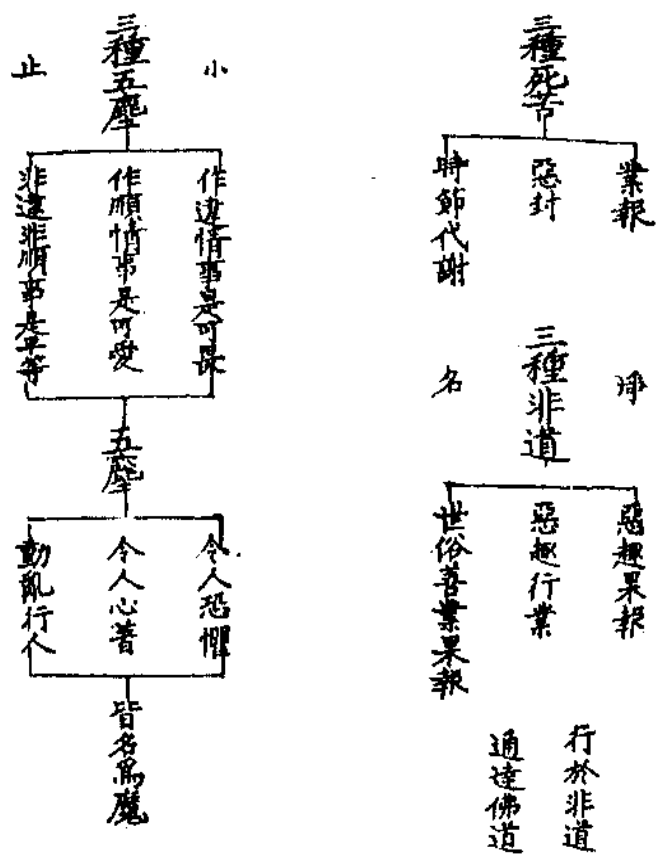 三種死苦
業報
惡封
時節代謝
淨
三種非道
名
惡趣果報
惡趣行業
世俗善業果報
行於非道
通達佛道
小
三種五塵
止
作違情事是可畏
作順情事是可愛
非違非順事是平等
五塵
令人恐懼
令人心著
動亂行人
皆名為魔